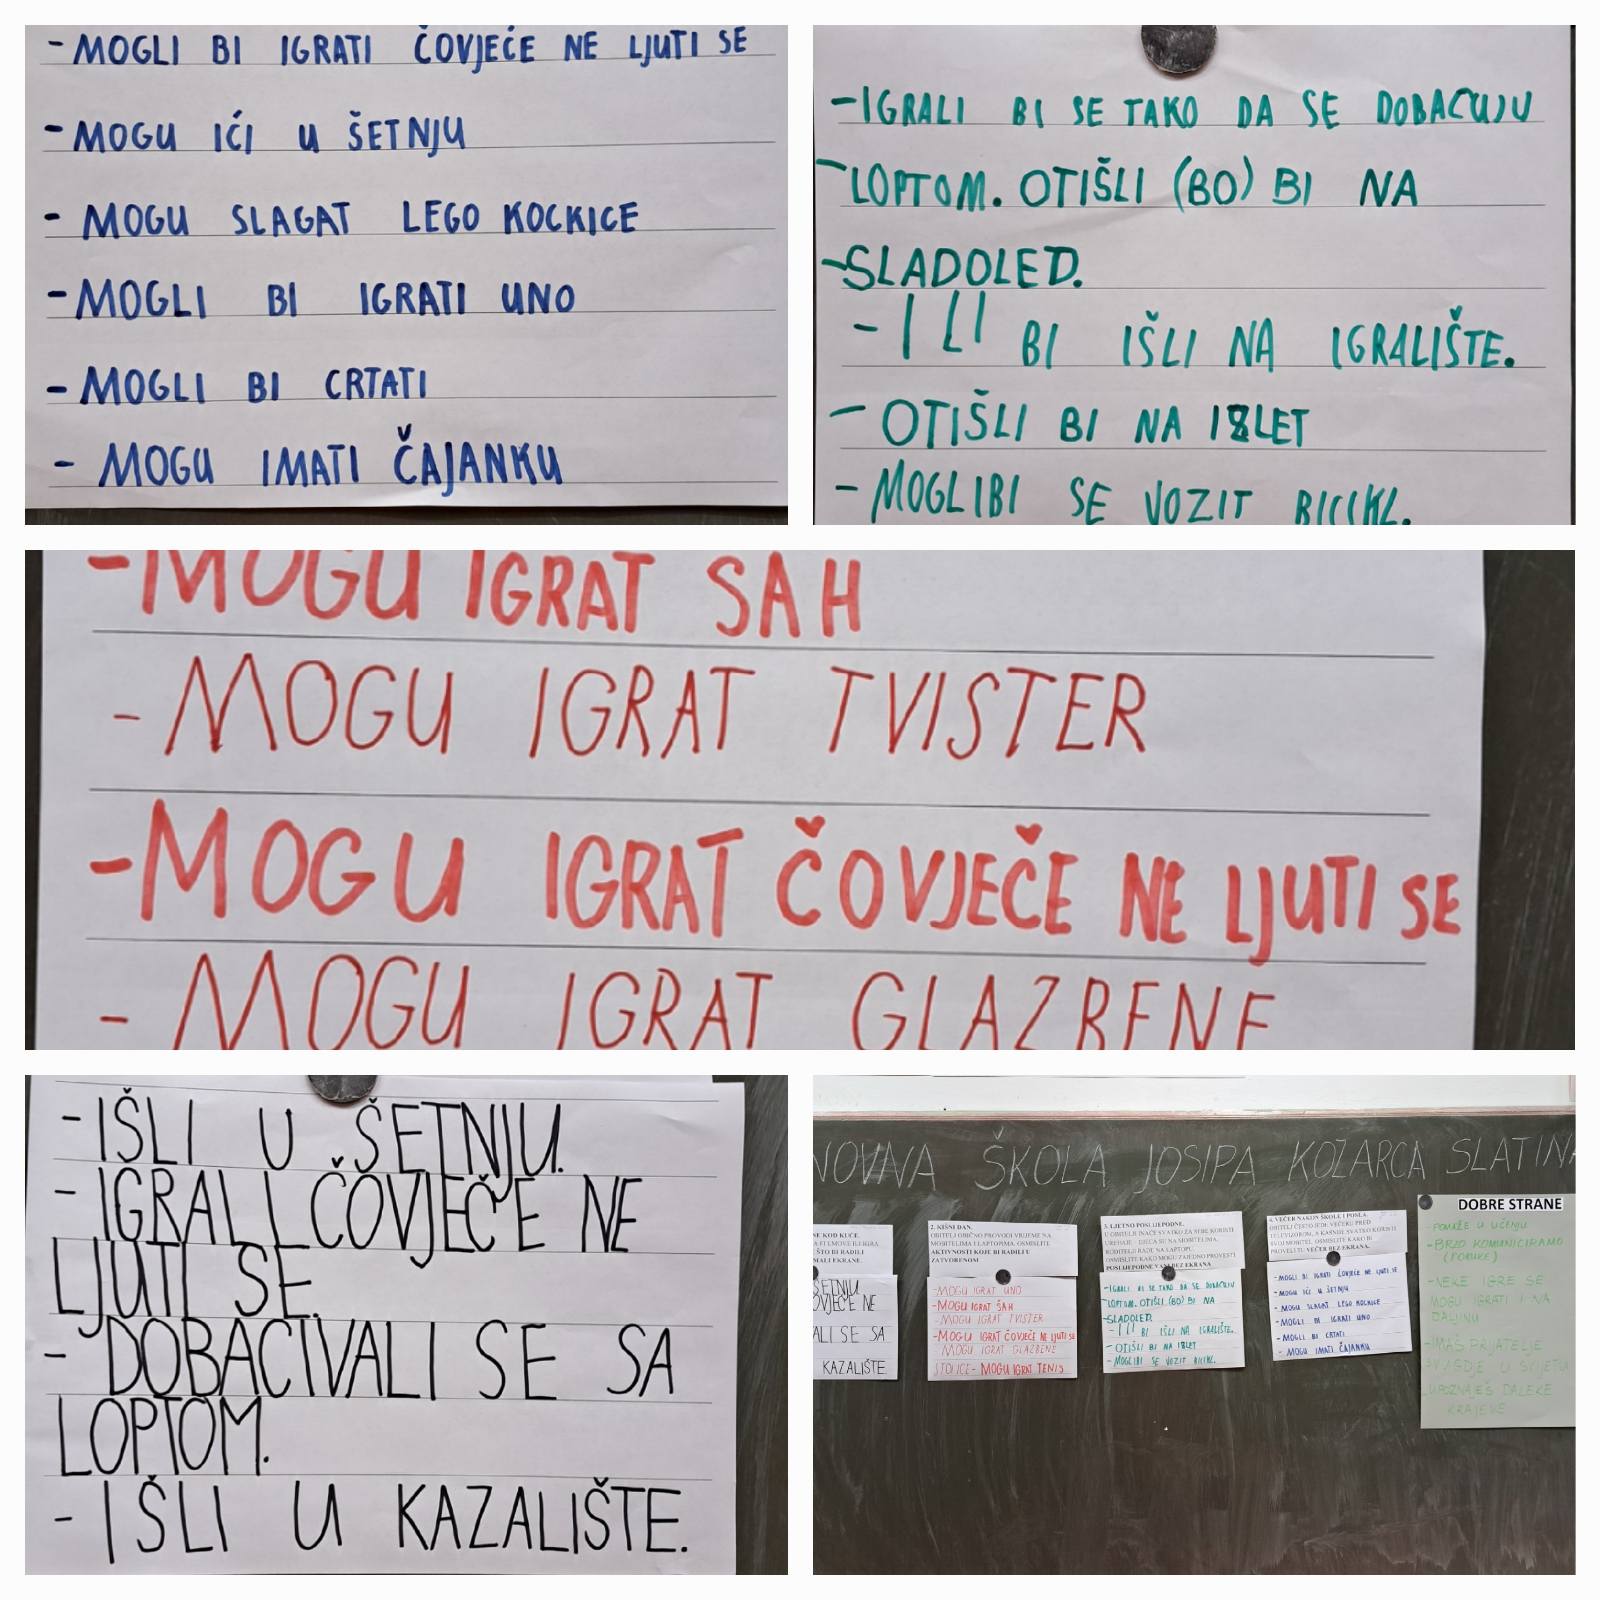 -MOGLI BI IGRATI ČOVJEČE NE LJUTI SE
-MOGU IĆI U ŠETNJU
- MOGU SLAGAT LEGO KOCKICE
-MOGLI BI IGRATI UNO
-MOGLI BI CRTATI
- MOGU IMATI ČAJANKU
-IGRALI BI SE TAKO DA SE DOBACUJU
-LOPTOM. OTIŠLI (BO) BI NA
-SLADOLED.
- ILI BI IŠLI NA IGRALIŠTE.
- OTIŠLI BI NA IZLET
- MOGLIBI SE VOZIT BICIKL.
-MOGU IGRAT SAH
- MOGU IGRAT TVISTER
-MOGU IGRAT ČOVJEČE NE LJUTI SE
- MOGU IGRAT GLAZBENE
-IŠLI U ŠETNJU.
- IGRALI ČOVJEČE NE
LJUTI SE.
- DOBACIVALI SE SA
LOPTOM.
- IŠLI U KAZALIŠTE.
NOVNA ŠKOLA JOSIPA KOZARCA SLATINA
NE KOD KUĆE.
ŠTO BI RADILI
MALI EKRANE.
ŠETNJU
OVJEČE NE
ALI SE SA
KAZALIŠTE
2. KIŠNI DAN.
OBITELJ OBIČNO PROVODI VRIJEME NA
MOBITELIMA I LAPTOPIMA. OSMISLITE
AKTIVNOSTI KOJE BI RADILI U
ZATVORENOM
-MOGU IGRAT UNO
-MOGU IGRAT ŠAH
-MOGU IGRAT TVISTER
-MOGU IGRAT ČOVJEČE NE LJUTI SE
MOGU IGRAT GLAZBENE
STOLICE- MOGU IGRAT TENIS
3. LJETNO POSLIJEPODNE.
U OBITELJI INAČE SVATKO ZA SEBE KORISTI
UREĐAJE - DJECA SU NA MOBITELIMA,
RODITELJI RADE NA LAPTOPU.
OSMISLITE KAKO MOGU ZAJEDNO PROVESTI
POSLIJEPODNE VANI BEZ EKRANA
-IGRALI BI SE TAKO DA SE DOBACUJU
-LOPTOM. OTIŠLI (BO) BI NA
-SLADOLED.
- ILI BI IŠLI NA IGRALIŠTE.
- OTIŠLI BI NA IZLET
- MOGLIBI SE VOZIT BICIKL.
4. VEČER NAKON ŠKOLE I POSLA.
OBITELJ ČESTO JEDE VEČERU PRED
TELEVIZOROM, A KASNIJE SVATKO KORISTI
SVOJ MOBITEL. OSMISLITE KAKO BI
PROVELI TU VEČER BEZ EKRANA.
-MOGLI BI IGRATI ČOVJEČE NE LJUTI SE
-MOGU IĆI U ŠETNJU
- MOGU SLAGAT LEGO KOCKICE
-MOGLI BI IGRATI UNO
-MOGLI BI CRTATI
- MOGU IMATI ČAJANKU
DOBRE STRANE
-POMAŽE U UČENJU
-BRZO KOMUNICIRAMO
(PORUKE)
-NEKE IGRE SE
MOGU IGRATI I NA
DALJINU
-IMAŠ PRIJATELJE
SVUGDJE U SVIJETU
-UPOZNAJEŠ DALEKE
KRAJEVE